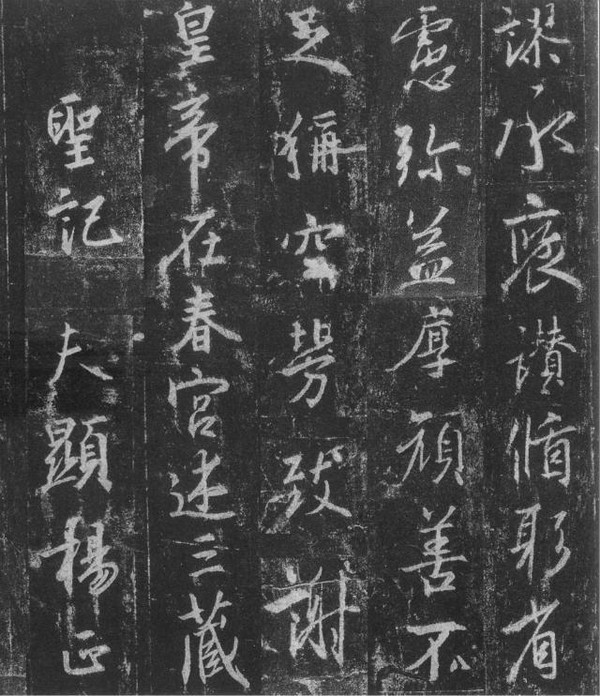 謬承褒讚脩躬省
慮弥益厚顔善不
足稱空勞致謝
皇帝在春宮述三藏
聖記 夫顯揚正